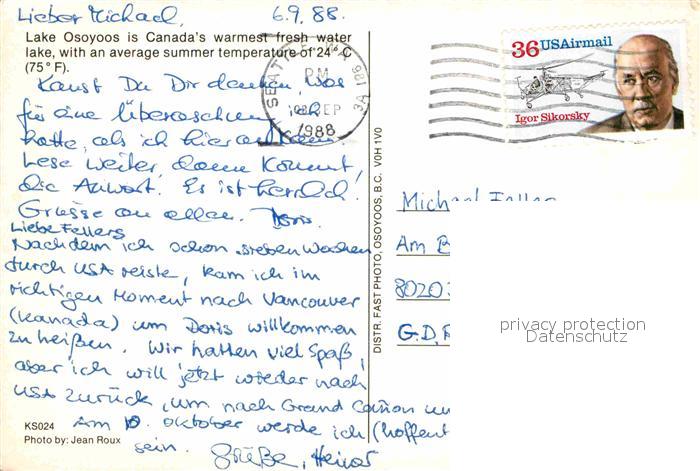 Lieber Michael, 6.9.88.
Lake Osoyoos is Canada's warmest fresh water
lake, with an average summer temperature of 24° C
(75° F).
Kanst Du Dir denken, was
für eine Überraschung ich
hatte, als ich hier ankam.
Lese weiter, dann kommt
die Antwort. Es ist herrlich!
Grüsse an allen. Doris.
Liebe Fellers
Nachdem ich schon sieben Wochen
durch USA reiste, kam ich im
richtigen Moment nach Vancouver
(Kanada) um Doris willkommen
zu heißen. Wir hatten viel Spaß,
aber ich will jetzt wieder nach
USA zurück, um nach Grand Cañon un
Am 10. Oktober werde ich (hoffent
sein. Grüße, Heiner
KS024
Photo by: Jean Roux
DISTR. FAST PHOTO, OSOYOOS, B.C. V0H 1V0
SEATTLE, WA 981
PM
SEP
1988
36 USAirmail
Igor Sikorsky
Michael Feller
Am B
8020
G.D.R
privacy protection
Datenschutz